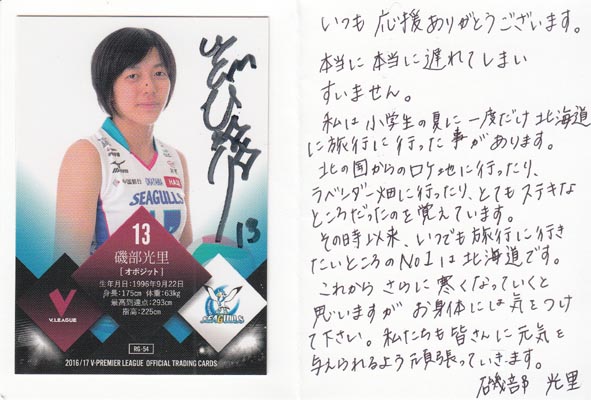 中国銀行
MIZUNO
OKAYAMA
SEAGULLS
13
13
磯部光里
[オポジット]
生年月日:1996年9月22日
身長:175cm 体重:63kg
最高到達点:293cm
指高:225cm
V.LEAGUE
SEAGULLS
RG-54
2016/17 V·PREMIER LEAGUE OFFICIAL TRADING CARDS
いつも 応援 ありがとうございます。
本当に 本当に 遅れてしまい
すいません。
私は 小学生の夏に 一度だけ 北海道
に旅行に 行った 事があります。
北の国からのロケ地に行ったり、
ラベンダー畑に行ったり、とてもステキな
ところだったのを 覚えています。
その時以来、いつでも 旅行に行き
たいところの No1は 北海道です。
これから さらに 寒くなっていくと
思いますが お身体には 気をつけ
て下さい。私たちも 皆さんに 元気を
与えられるよう 頑張っていきます。
磯部 光里